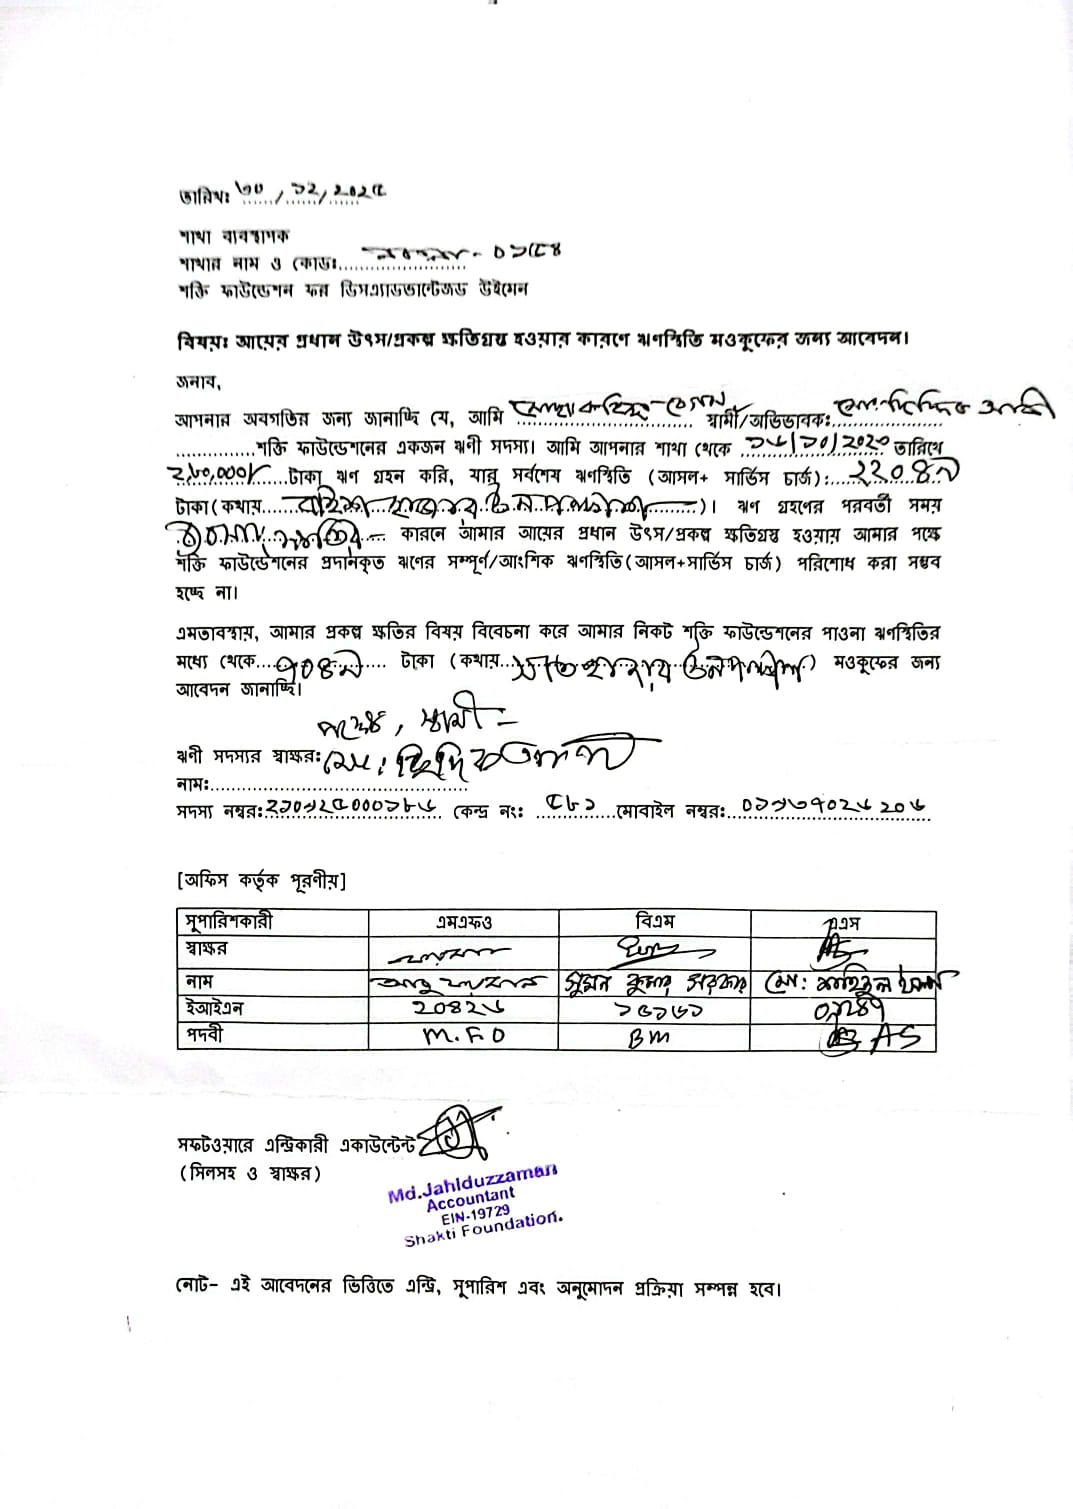 তারিখঃ ৩০/১২/২০২৫
শাখা ব্যবস্থাপক
শাখার নাম ও কোডঃ - ০১৫৪
শক্তি ফাউন্ডেশন ফর ডিসএ্যাডভান্টেজড উইমেন
বিষয়ঃ আয়ের প্রধান উৎস/প্রকল্প ক্ষতিগ্রস্ত হওয়ার কারণে ঋণস্থিতি মওকুফের জন্য আবেদন।
জনাব,
আপনার অবগতির জন্য জানাচ্ছি যে, আমি স্বামী/অভিভাবকঃ
শক্তি ফাউন্ডেশনের একজন ঋণী সদস্য। আমি আপনার শাখা থেকে তারিখে
টাকা ঋণ গ্রহন করি, যার সর্বশেষ ঋণস্থিতি (আসল+ সার্ভিস চার্জ): ২২০৪৯
টাকা (কথায় বাইশ হাজার ঊনপঞ্চাশ)। ঋণ গ্রহণের পরবর্তী সময়
কারনে আমার আয়ের প্রধান উৎস/প্রকল্প ক্ষতিগ্রস্ত হওয়ায় আমার পক্ষে
শক্তি ফাউন্ডেশনের প্রদানকৃত ঋণের সম্পূর্ণ/আংশিক ঋণস্থিতি(আসল+সার্ভিস চার্জ) পরিশোধ করা সম্ভব
হচ্ছে না।
এমতাবস্থায়, আমার প্রকল্প ক্ষতির বিষয় বিবেচনা করে আমার নিকট শক্তি ফাউন্ডেশনের পাওনা ঋণস্থিতির
মধ্যে থেকে ৭০৪৯ টাকা (কথায় সাত হাজার ঊনপঞ্চাশ) মওকুফের জন্য
আবেদন জানাচ্ছি।
পক্ষে, স্বামী =
ঋণী সদস্যর স্বাক্ষরঃ মোঃ ছিদ্দিক আলী
নামঃ
সদস্য নম্বরঃ কেন্দ্র নং: ৫৮১ মোবাইল নম্বরঃ
[অফিস কর্তৃক পূরণীয়]
সুপারিশকারী এমএফও বিএম এএস
স্বাক্ষর
নাম সুমন কুমার সরকার মো:
ইআইএন ২০৪২৬ ১৬১৬১
পদবী M.F.O BM AS
সফটওয়ারে এন্ট্রিকারী একাউন্টেন্ট
(সিলসহ ও স্বাক্ষর)
Md.Jahiduzzaman
Accountant
EIN-19729
Shakti Foundation.
নোট- এই আবেদনের ভিত্তিতে এন্ট্রি, সুপারিশ এবং অনুমোদন প্রক্রিয়া সম্পন্ন হবে।